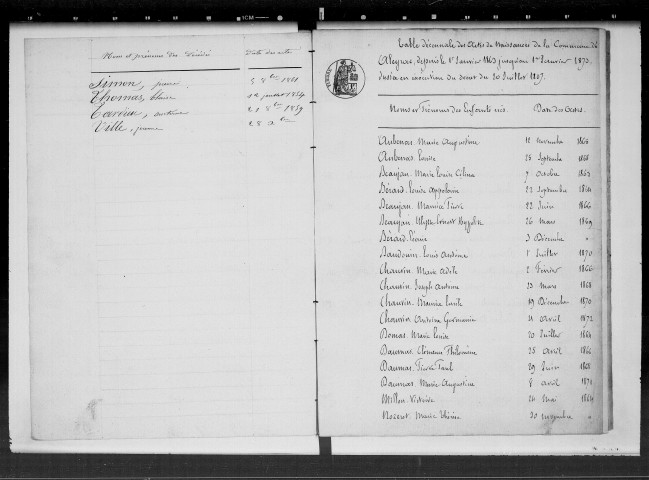 Nom et prénoms des Décédés Date des actes
Simon, 5 8bre 1851
Thomas, 12 juillet 1854
21 8bre 1859
Ville, 28 bre
Table décennale des Actes de Naissances de la Commune de
Aleyrac, depuis le 1er Janvier 1863 jusqu'au 1er Janvier 1873.
Dressée en exécution du décret du 20 Juillet 1807.
Noms et Prénoms des Enfants nés. Date des Actes.
Aubenas. Marie Augustine 12 novembre 1863
Aubenas. Emile 25 Septembre 1868
Beaujan. Marie Louise Célina 7 octobre 1863
Bérard. Louise Appolonie 22 Septembre 1864
Beaujan. Maurice Pierre 22 Juin 1866
Beaujan. Ulysse Ernest Hyppolite 26 mars 1869
Bérard. 3 Décembre "
Baudouin. Louis Antoine 1 Juillet 1870
Chauvin. Marie Adèle 2 Février 1866
Chauvin. Joseph Antoine 23 mars 1868
Chauvin. Maurice Emile 19 Décembre 1870
Chauvin. Germanie 21 Avril 1872
Marie Louise 20 Juillet 1864
Daumas. Clémence Philomène 25 avril 1866
Daumas. Pierre Paul 29 Juin 1868
Daumas. Marie Augustine 8 avril 1871
Millon. 24 Mai 1864
Nozeret. Marie 30 novembre "